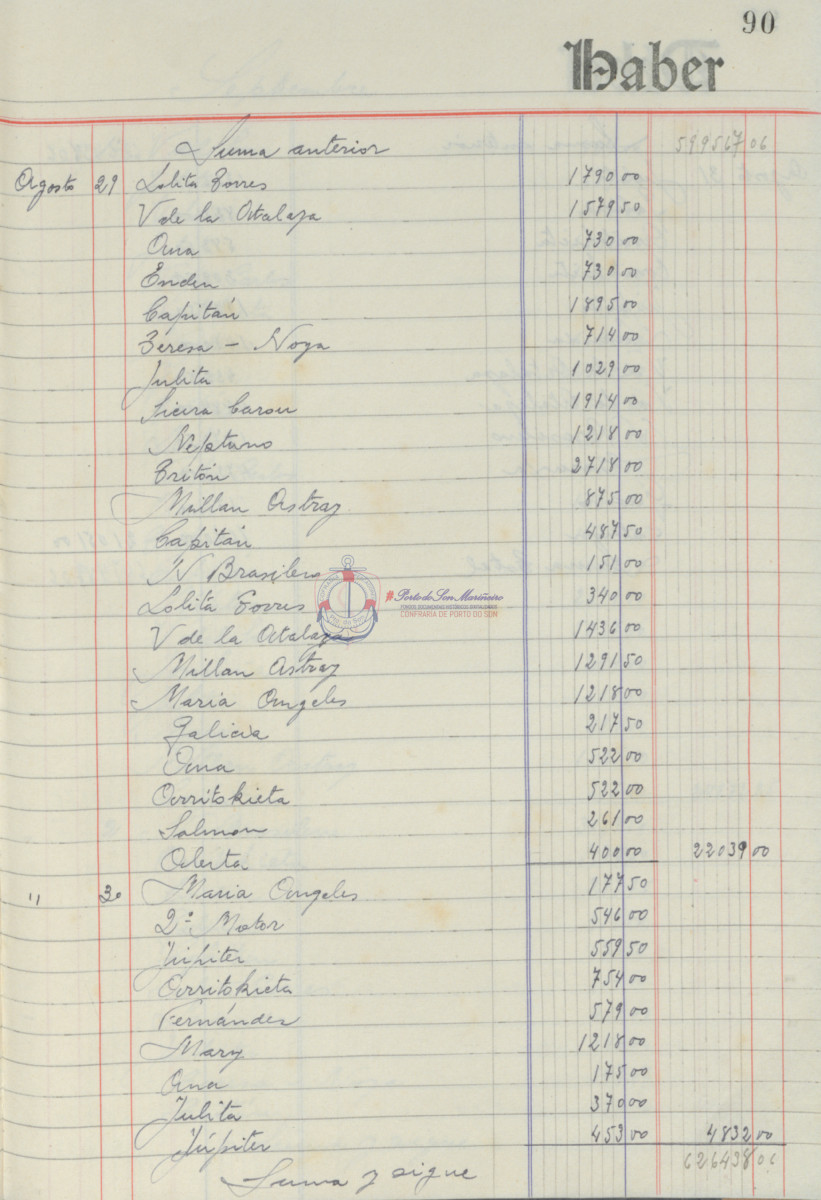 90
Haber
Suma anterior 599567 06
Agosto 29 Lolita Torres 1790 00
V de la Atalaya 1579 50
Ana 730 00
Enden 730 00
Capitán 1895 00
Teresa - Noya 714 00
Julita 1029 00
Sieira Carou 1914 00
Neptuno 1218 00
Tritón 2718 00
Millan Astray 875 00
Capitán 487 50
N Brasilero 151 00
Lolita Torres 340 00
V de la Atalaya 1436 00
Millan Astray 1291 50
Maria Angeles 1218 00
Galicia 217 50
Ama 522 00
Arritokieta 522 00
Salmon 261 00
Alerta 400 00 22039 00
" 30 Maria Angeles 177 50
2º Motor 546 00
Júpiter 559 50
Arritokieta 754 00
Fernández 579 00
Mary 1218 00
Ana 175 00
Julita 370 00
Júpiter 453 00 4832 00
Suma y sigue 626438 06
#Porto do Son Mariñeiro
CONFRARÍA DE PORTO DO SON